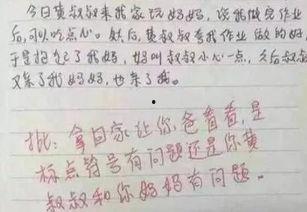 今日黄叔叔来我家玩妈妈，说我做完作业
后，可以吃点心。然后，黄叔叔看我作业做的好，
于是抱起了我妈，妈叫叔叔小心一点，之后叔叔
又亲了我妈妈，也亲了我。
批：拿回家让你爸看看，是
标点符号有问题还是你黄
叔叔和你妈妈有问题。